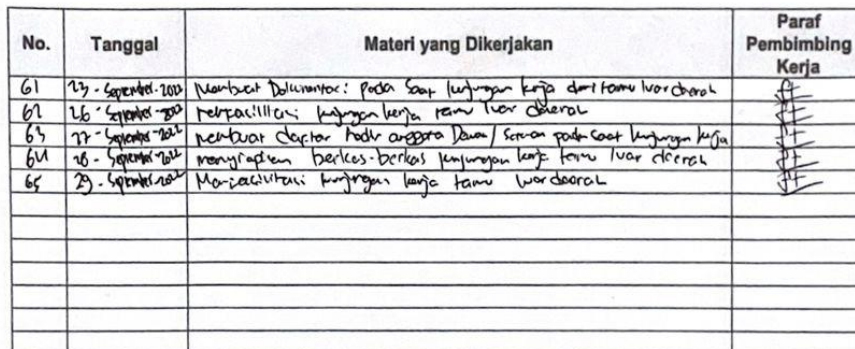 No. Tanggal Materi yang Dikerjakan Paraf Pembimbing Kerja
61 23-September-2022 Membuat Dokumentasi pada saat kunjungan kerja dari tamu luar daerah
62 26-September-2022 memfasilitasi kunjungan kerja tamu luar daerah
63 27-September-2022 membuat daftar hadir anggota Dewan / pada saat kunjungan kerja
64 28-September-2022 menyiapkan berkas-berkas kunjungan kerja tamu luar daerah
65 29-September-2022 Memfasilitasi kunjungan kerja tamu luar daerah